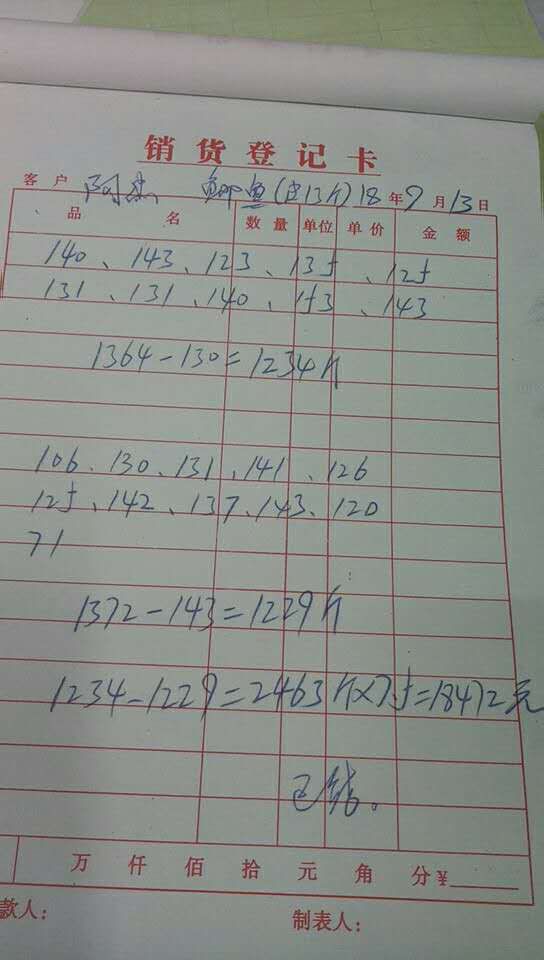 销货登记卡
客户 阿杰 鲫鱼(皮13斤) 18年9月13日
品名 数量 单位 单价 金额
140、143、123、135、125
131、131、140、153、143
1364-130=1234斤
106、130、131、141、126
125、142、137、143、120
71
1372-143=1229斤
1234-1229=2463斤×7.5=18472元
万仟佰拾元角分¥
款人: 制表人: